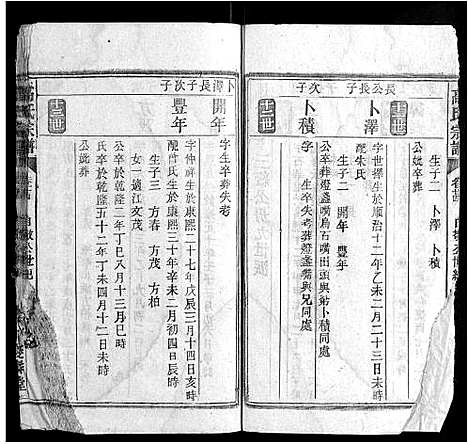 高氏宗譜
卷
生子二 卜澤 卜積
公妣卒葬
長公長子
十一世
卜澤
字世擇生於順治十二年乙未二月二十三日未時
配朱氏
生子二 開年 豐年
公卒葬燈盞嘴烏石嘴出頭與姑卜積同處
次子
十一世
卜積
生卒失考葬燈盞嘴與兄同處
字生卒葬失考
卜澤長子
十二世
開年
次子
豐年
字仲
生於康熙二十七年戊辰三月十四日亥時
配曾氏生於康熙三十年辛未二月初四日辰時
生子三 方春 方茂 方柏
女一適江文茂
公卒於乾隆二年丁巳八月十三月巳時
氏卒於乾隆五十二年丁未四月十二日未時
公妣葬
氏宗譜
堂